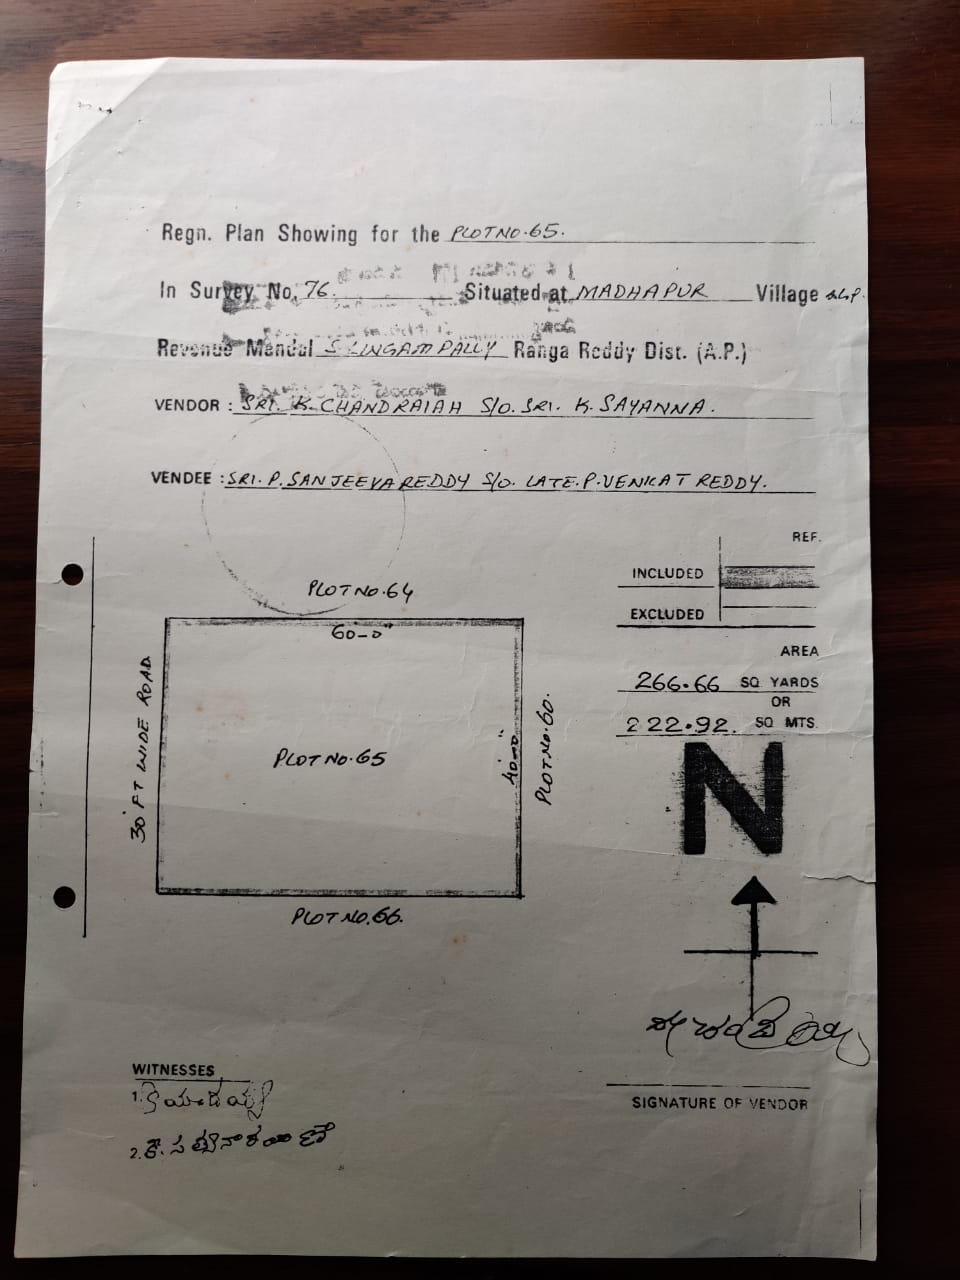 Regn. Plan Showing for the PLOT NO. 65.
In Survey No. 76. Situated at MADHAPUR Village
Revenue Mandal SLINGAMPALLY Ranga Reddy Dist. (A.P.)
VENDOR : SRI. K. CHANDRAIAH S/O. SRI. K. SAYANNA.
VENDEE : SRI. P. SANJEEVA REDDY S/O. LATE. P. VENKAT REDDY.
REF.
INCLUDED
EXCLUDED
AREA
266.66 SQ. YARDS
OR
222.92. SQ. MTS.
N
PLOT NO. 64
60-0"
30' FT WIDE ROAD
PLOT NO. 65
40-0"
PLOT NO. 60.
PLOT NO. 66.
SIGNATURE OF VENDOR
WITNESSES
1.
2. కె. సత్యనారాయణ